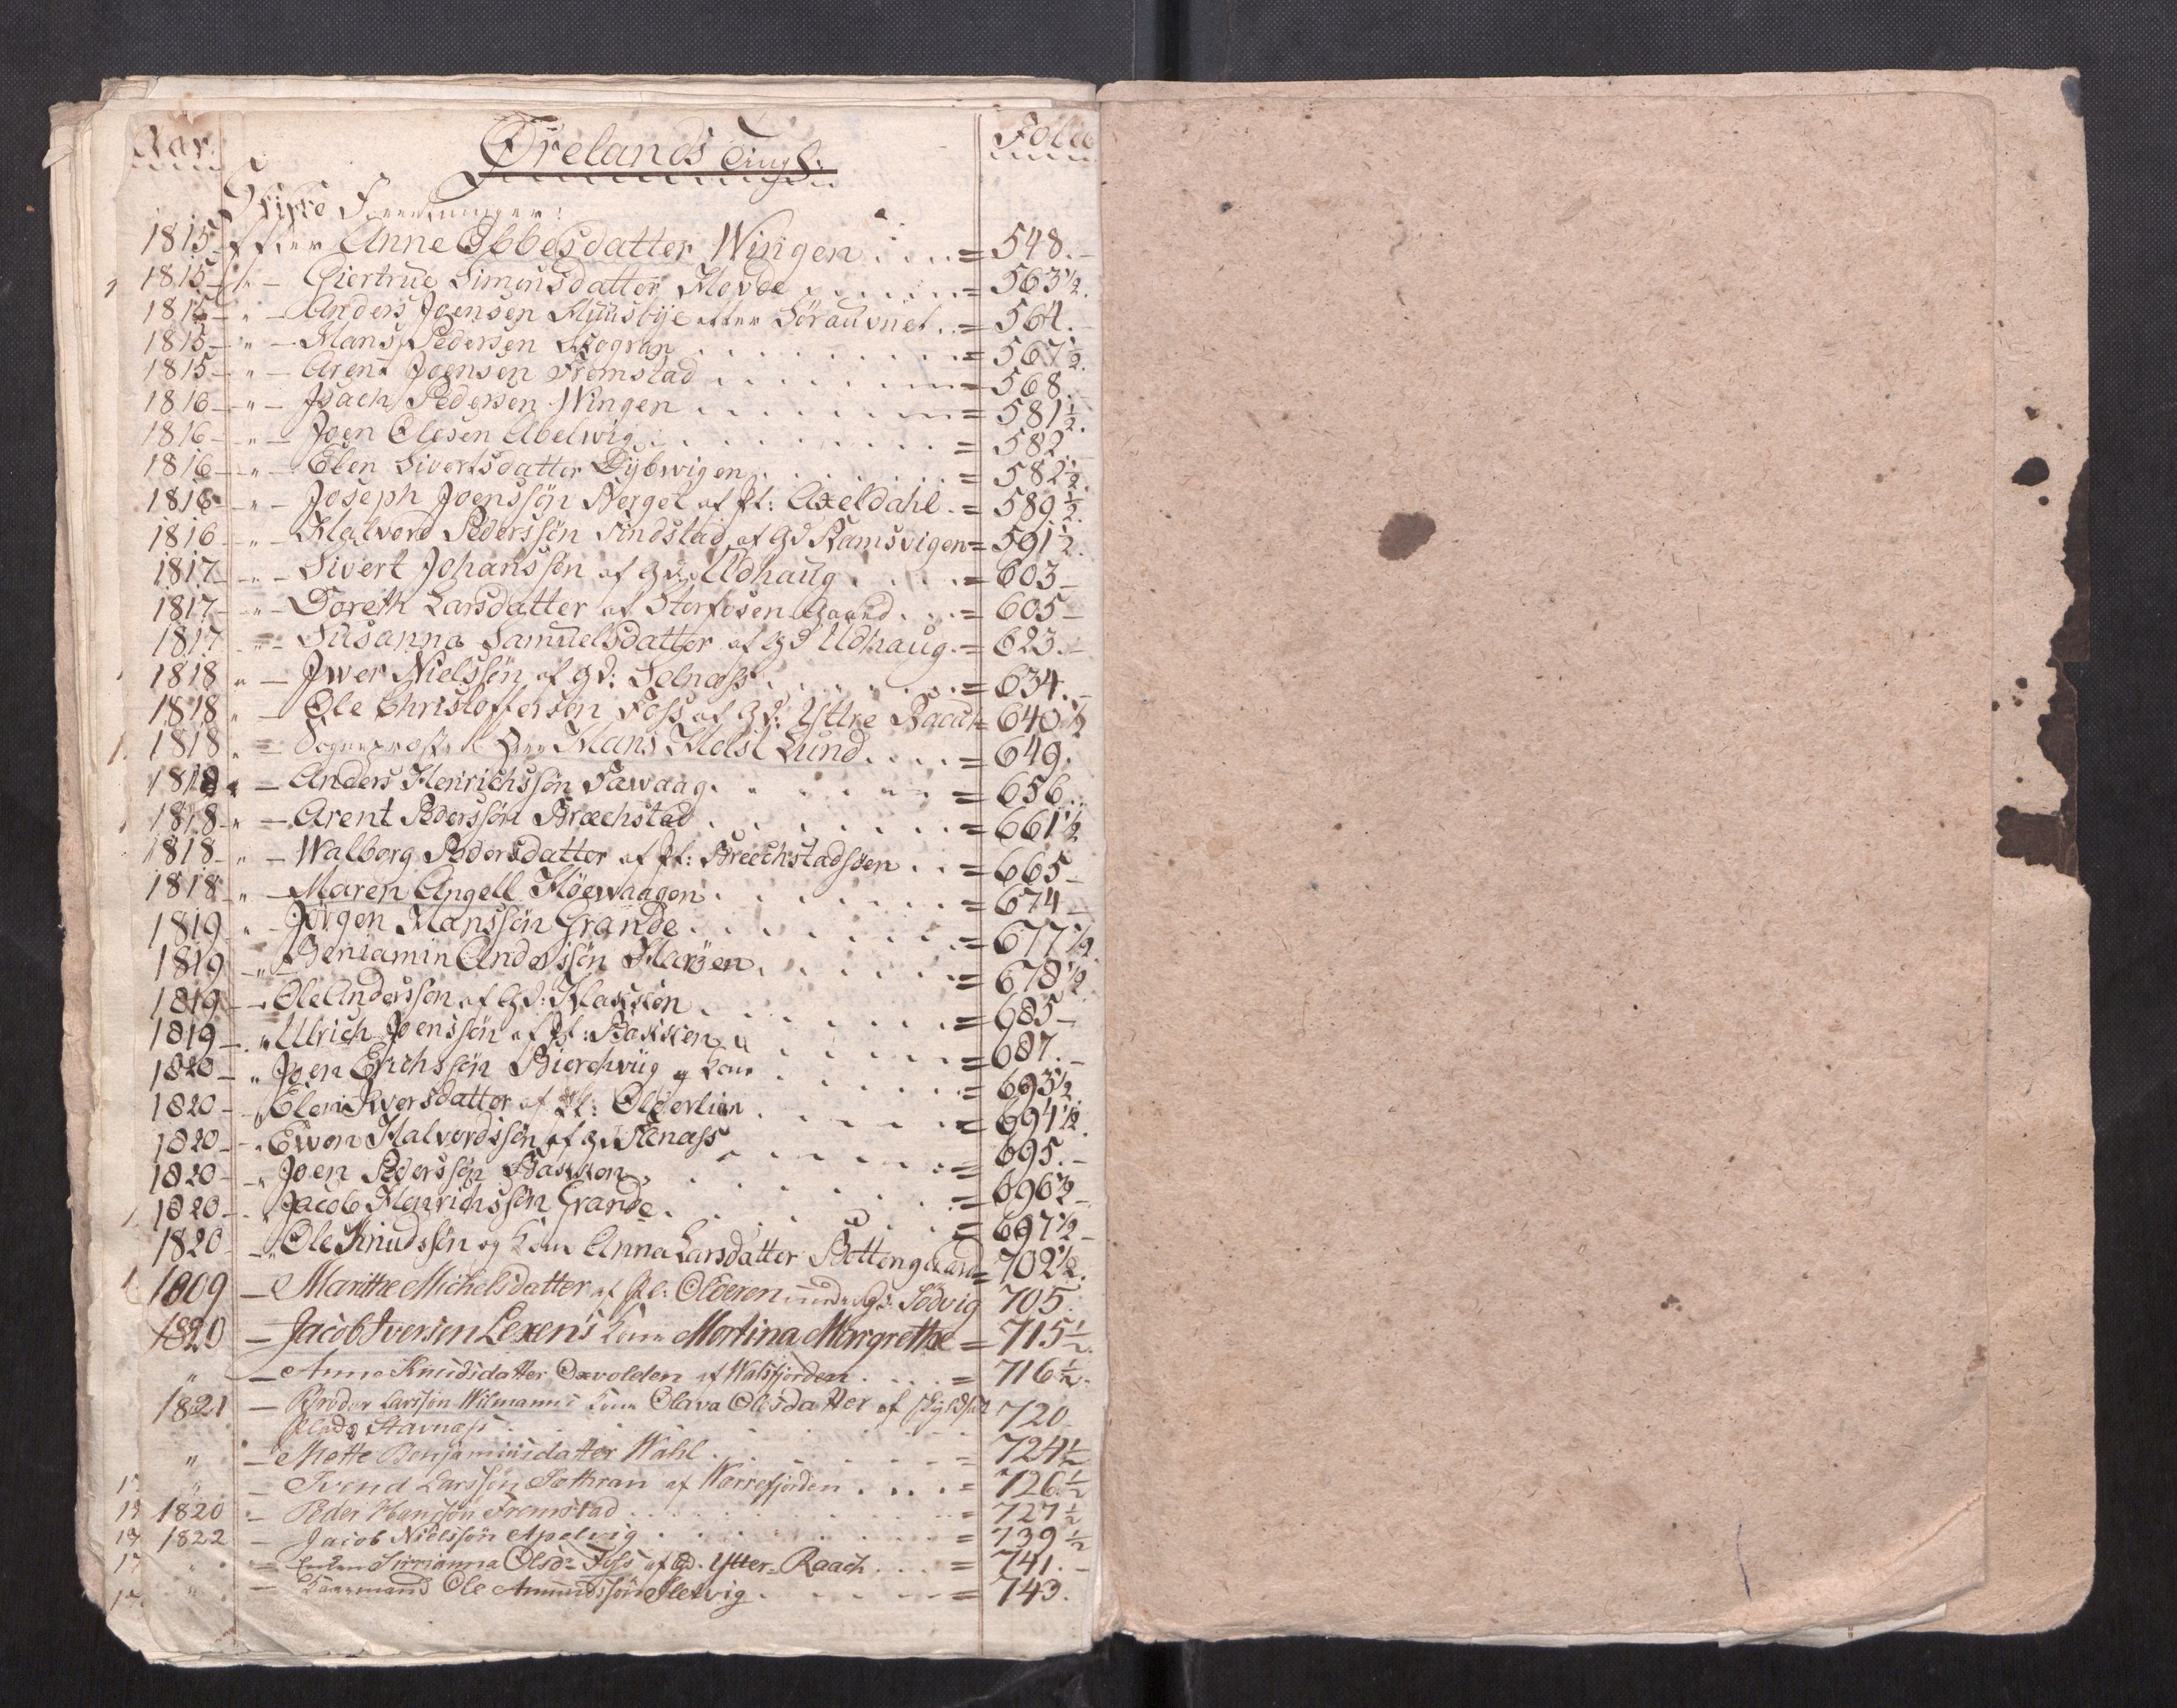 Aar. Ørelands Tingl: Folio
Skifte Forretninger:
1815 efter Anne Ibbesdatter Wingen = 548.
1815 " Giertrue Simonsdatter Hovde = 563½.
1815 " Anders Joensen Huusbye efter Söraunet = 564.
1815 " Hans Pedersen = 567½.
1815 " Arent Joensen Fremstad = 568.
1816 " Isach Pedersen Wingen = 581½.
1816 " Joen Olesen Abelwig = 582.
1816 " Elen Sivertsdatter Dybwigen = 582½.
1816 " Joseph Joenssön Berget af Pl: Axeldahl = 589½.
1816 " Halvord Pederssön Findstad af Gd Ramsvigen = 591½.
1817 " Sivert Johanssön af Gd: Udhaug = 603
1817 " Doreth Larsdatter af Storfosen Gaard = 605
1817 " Susanna Samuelsdatter af Gd Udhaug = 623.
1818 " Iwer Nielssön af Gd: Selnæss = 634.
1818 " Ole Christoffersen Foss af Gd: Yttre Raach = 640½
1818 " Sogneprest Herr Hans Holst Lund = 649.
1818 " Anders Henrichssön Sæwaag = 656.
1818 " Arent Pederssön Bræchstad = 661½
1818 " Walborg Pedersdatter af Pl: Breechstadsøen = 665
1818 " Maren Angell Höewaagen = 674
1819 " Jörgen Hanssön Grande = 677½
1819 " Beniamin Anderssön Garten = 678½
1819 " Ole Anderssön af Gd: Klakken = 685
1819 " Ulrich Joenssön af Pl: Bakken = 687.
1820 " Joen Erichssön Bierchviig og Kone = 693½
1820 " Elen Iversdatter af Pl: Olderlien = 694½.
1820 " Ewen Halvordssön af Gd = 695.
1820 " Joen Pederssön Bakken = 696½
1820 " Jacob Henrichssön Grande = 697½
1820 " Ole Knudssön og Kone Anna Larsdatter Bottengaard = 702½.
1809 Marithe Michelsdatter af Pl: Olderen under Gd: Södvig 705.
1820 Jacob Iversen Lexens Kone Martina Margrethe = 715½.
" Anne Knudsdatter Oxvolden af Walsfjorden = 716½.
1821 Broder Larssön Wilmanns Kone Olava Olesdatter af
Plads Stavnæs 720
" Mette Benjaminsdatter Wahl = 724½
" Svend Larssön Sethran af Worrefjorden = 726½
1820 Peder Hanssön Fremstad = 727½
1822 Jacob Nielssön Apelvig = 739½
" Enken Sirrianna Olsdr Foss af Gd. Ytter-Raach = 741.
" Kaarmand Ole Amundssön Sletvig = 743.